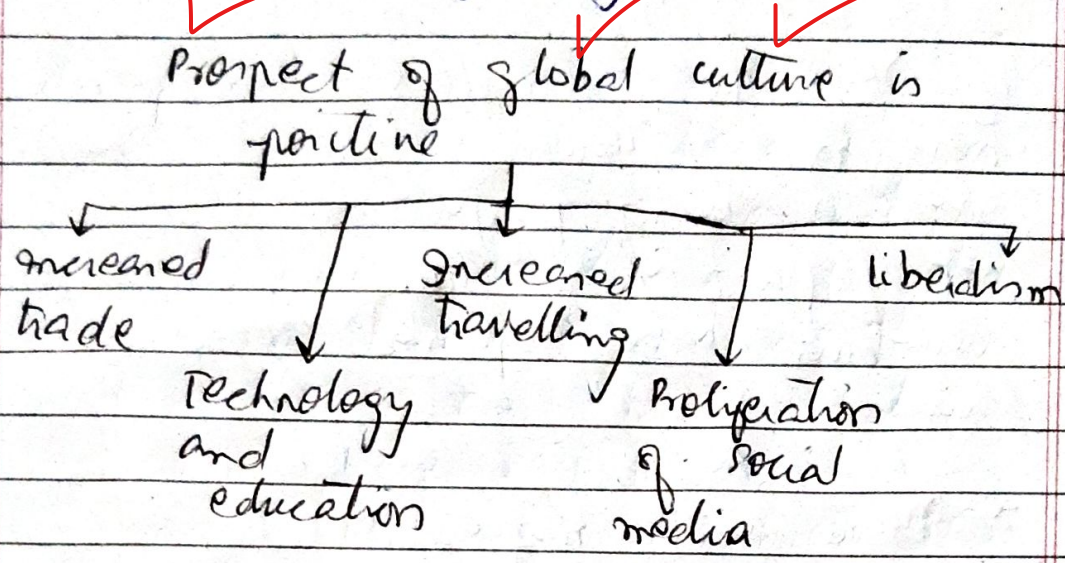 Prospect of global culture is
positive
Increased
trade
Technology
and
education
Increased
travelling
Proliferation
of social
media
liberalism